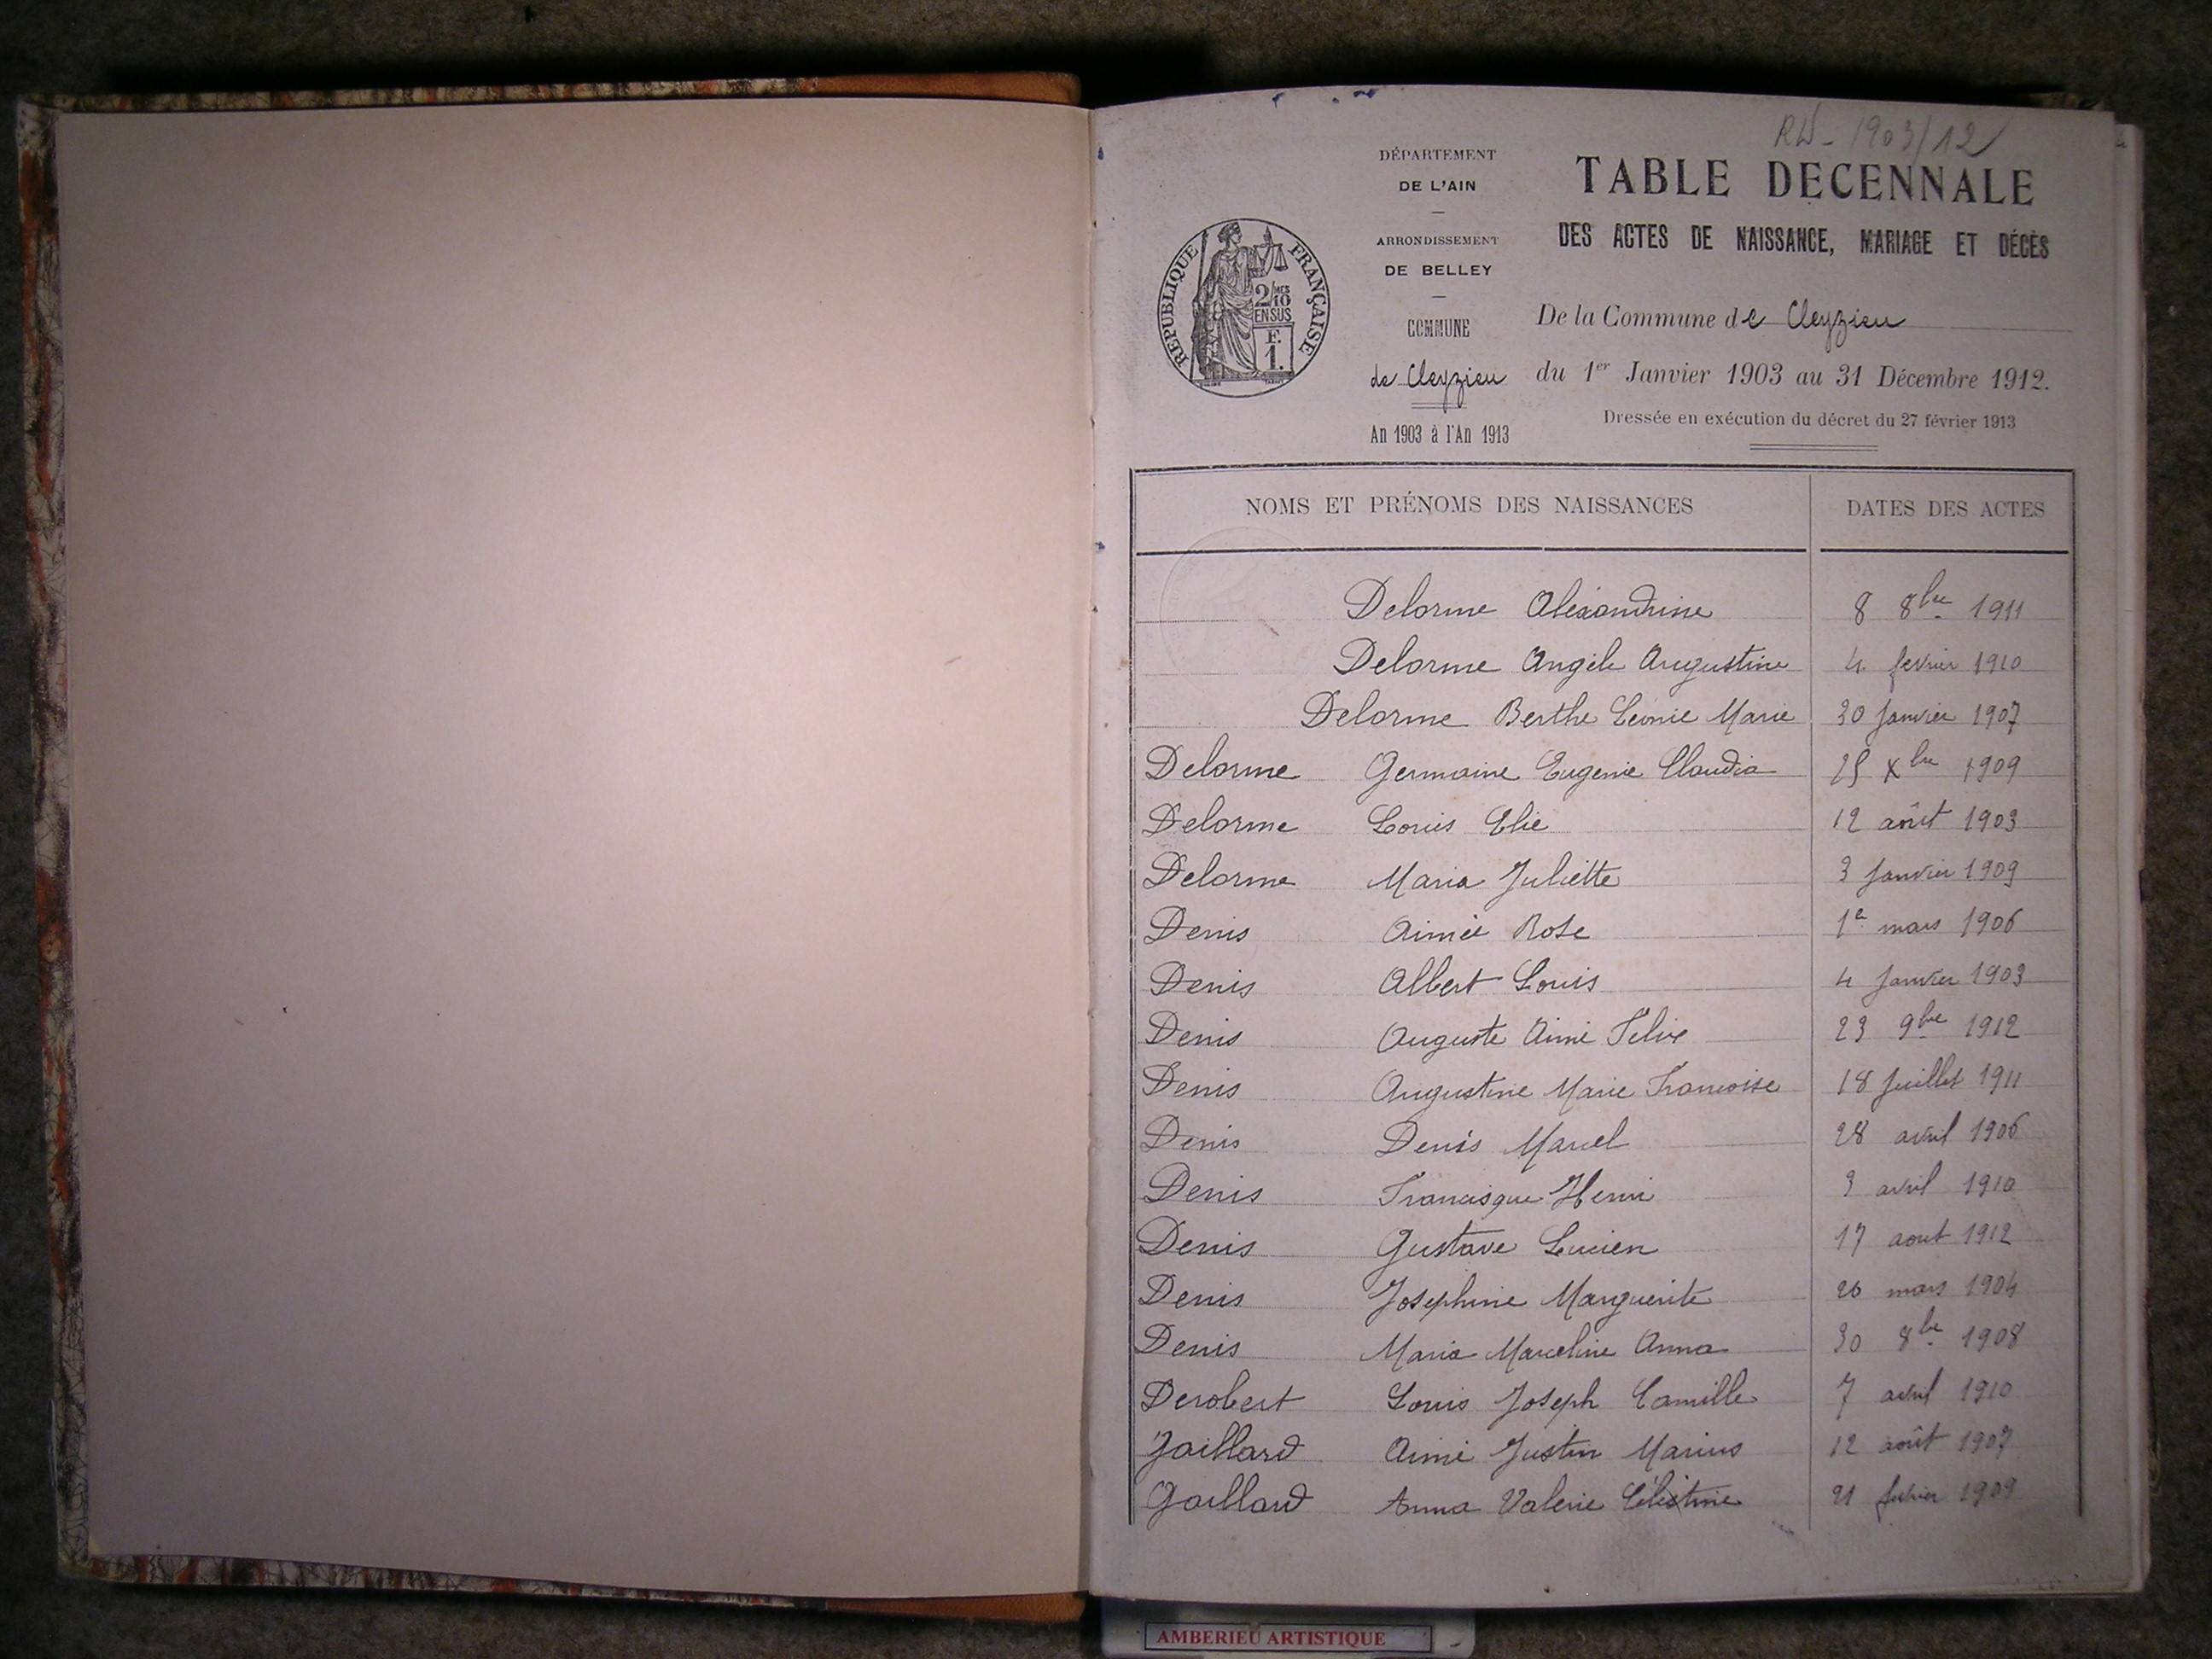 RD - 1903/12
DÉPARTEMENT
DE L'AIN
ARRONDISSEMENT
DE BELLEY
COMMUNE
de Cleyzieu
An 1903 à l'An 1913
REPUBLIQUE FRANÇAISE
2/10 MES
EN SUS
F.
1.
TABLE DECENNALE
DES ACTES DE NAISSANCE, MARIAGE ET DÉCÈS
De la Commune de Cleyzieu
du 1er Janvier 1903 au 31 Décembre 1912.
Dressée en exécution du décret du 27 février 1913
NOMS ET PRÉNOMS DES NAISSANCES DATES DES ACTES
Delorme Aléxandrine 8 8bre 1911
Delorme Angèle Augustine 4 fevrier 1910
Delorme Berthe Léonie Marie 30 Janvier 1907
Delorme Germaine Eugenie Claudia 25 Xbre 1909
Delorme Louis Elie 12 août 1903
Delorme Maria Juliette 3 Janvier 1909
Denis Aimée Rose 1e mars 1906
Denis Albert Louis 4 Janvier 1903
Denis Auguste Aimé Felix 23 9bre 1912
Denis Augustine Marie Francoise 18 Juillet 1911
Denis Denis Marcel 28 avril 1906
Denis Francisque Henri 3 avril 1910
Denis Gustave Lucien 17 aout 1912
Denis Josephine Marguerite 26 mars 1904
Denis Maria Marceline Anna 30 8bre 1908
Derobert Louis Joseph Camille 7 avril 1910
Gaillard Aimé Justin Marius 12 août 1907
Gaillard Anna Valerie Célestine 21 fevrier 1909
AMBERIEU ARTISTIQUE